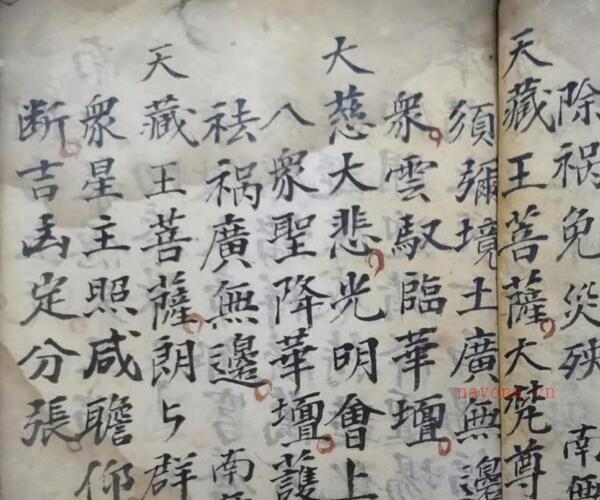 除祸免災殃 南
天藏王菩薩大梵尊
須彌境土廣無邊
衆雲馭臨華壇
大慈大悲光明會上
八衆聖降華壇護
祛祸廣無邊 南
天藏王菩薩朗与群
衆星主照咸瞻仰
断吉凶定分張
nayona.cn